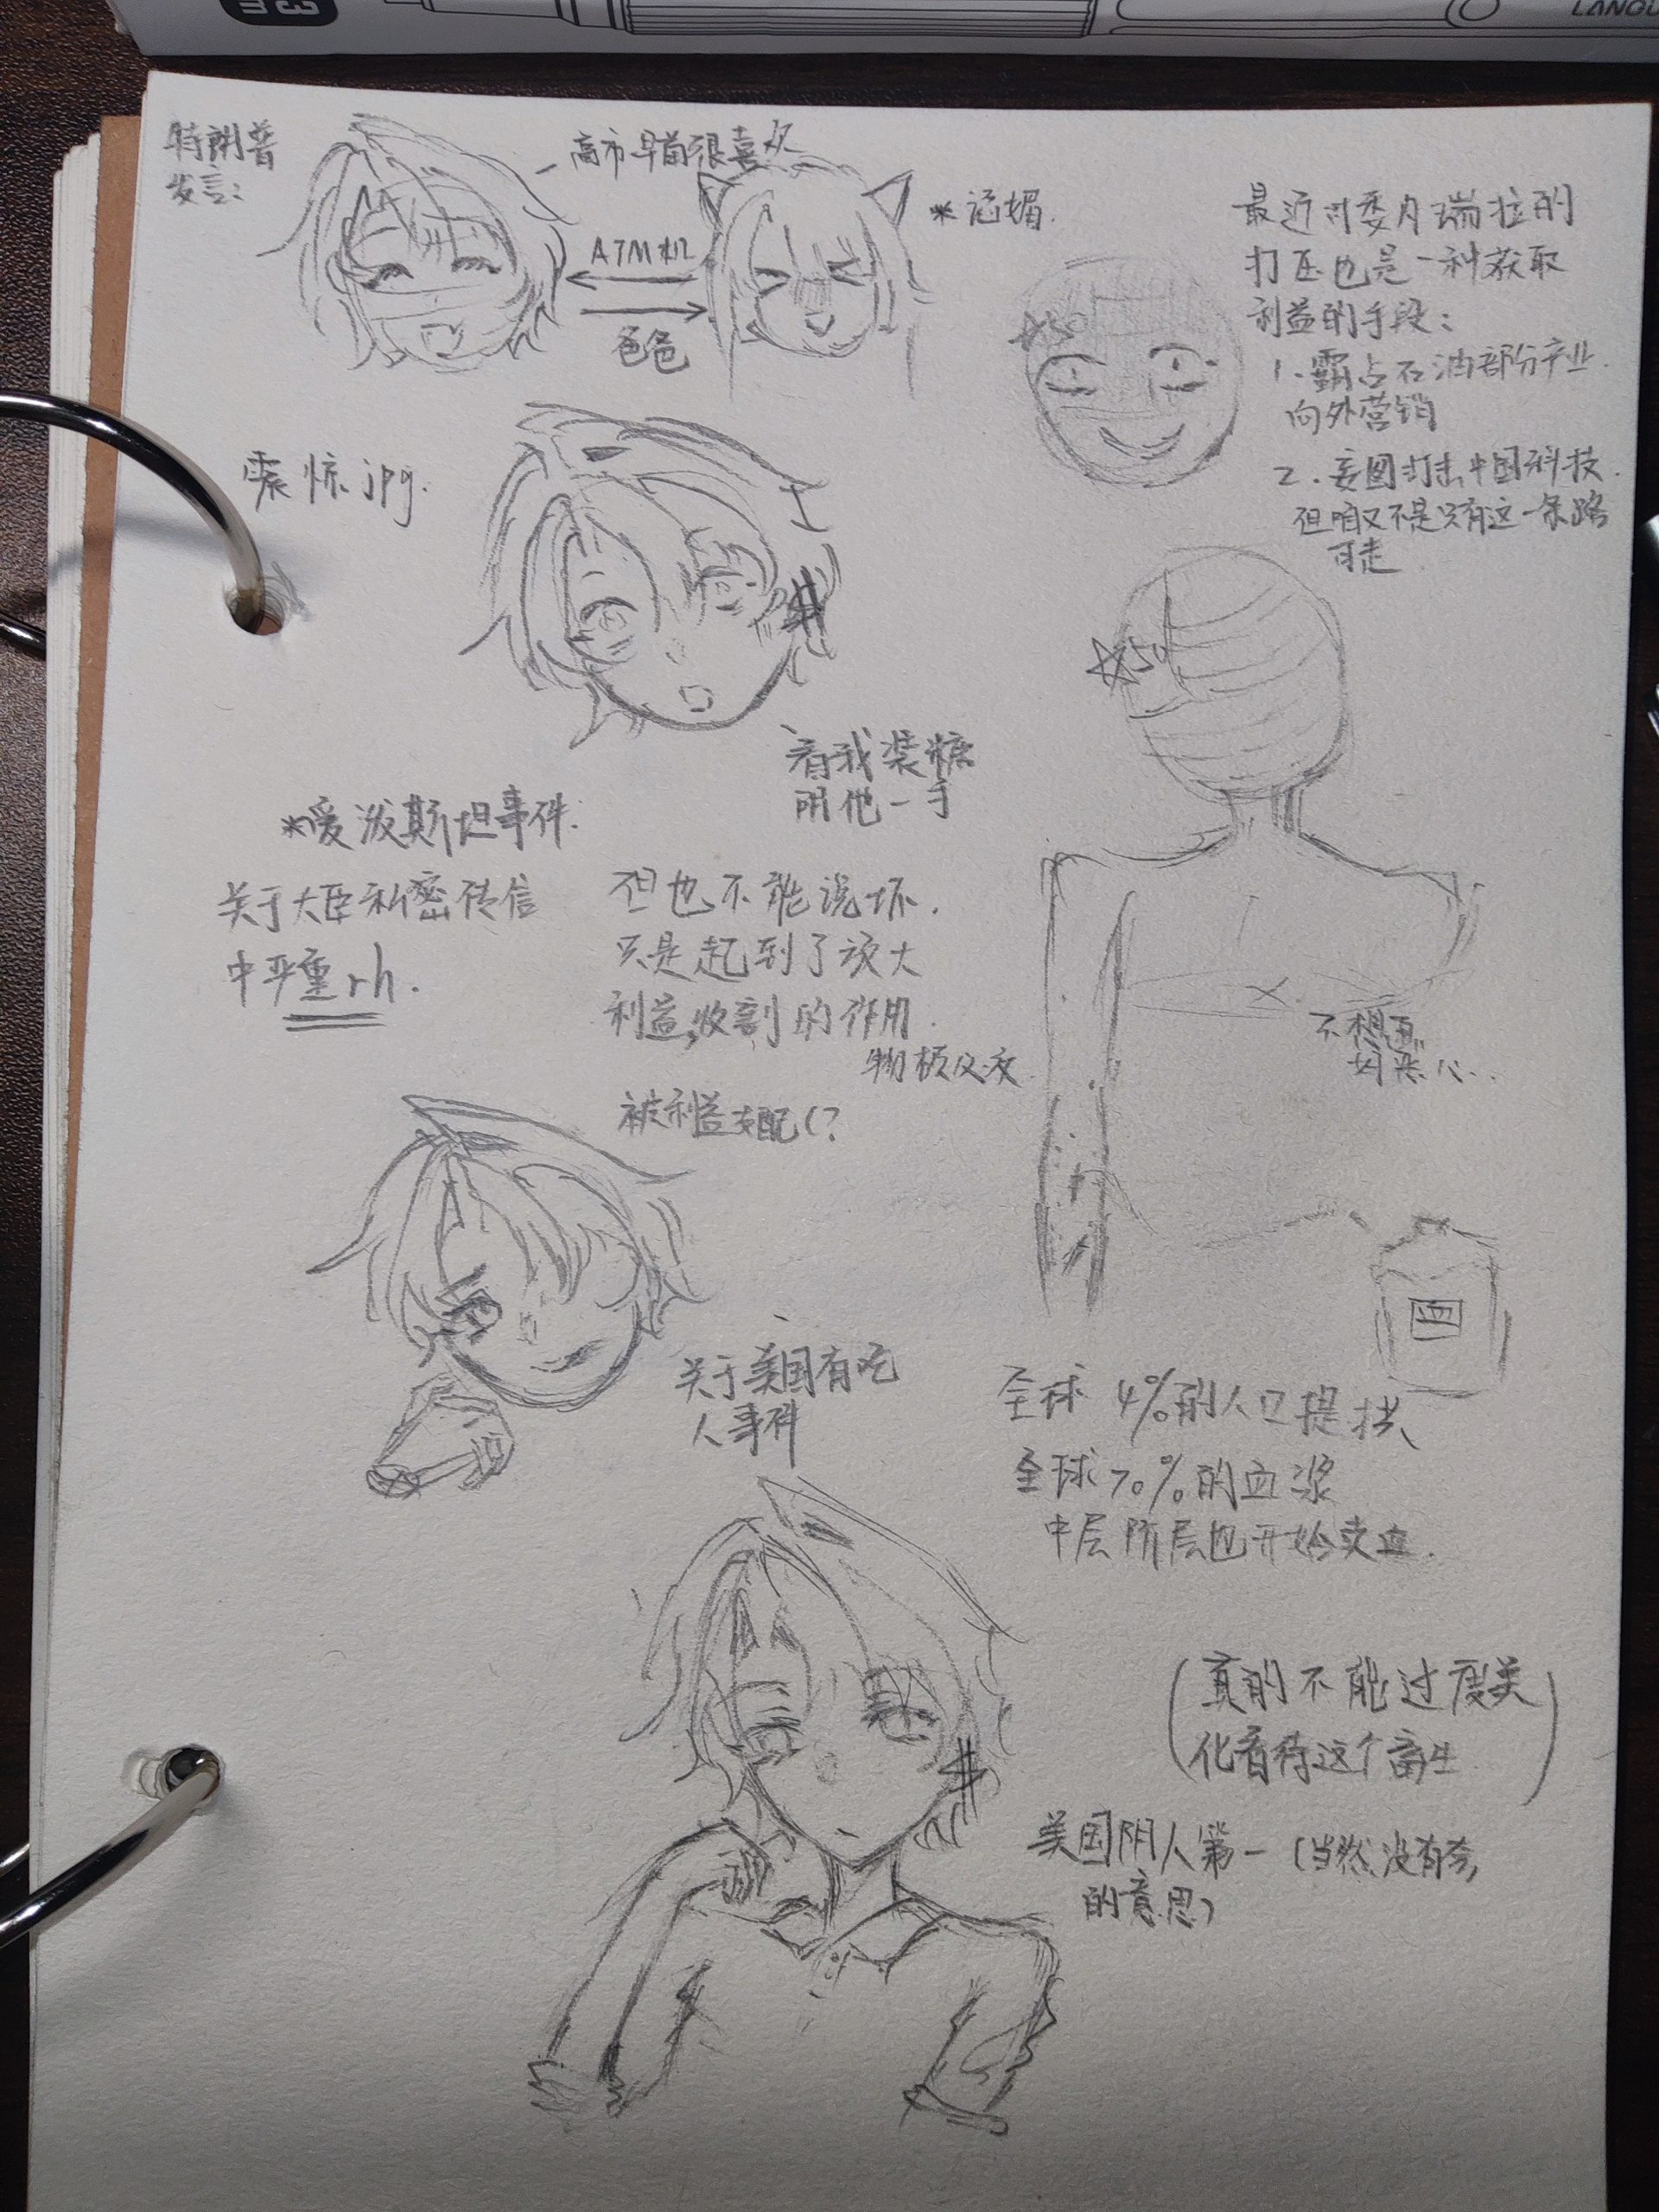 3
m
LANGU
特朗普
发言:
高市早苗很喜欢
ATM机
爸爸
*谄媚.
最近对委内瑞拉的
打压也是一种获取
利益的手段:
1.霸占石油部分产业.
向外营销
2.妄图打击中国科技.
但咱又不是只有这一条路
可走
☆50
震惊jpg.
☆50
看我装糖
阴他一手
*爱泼斯坦事件:
关于大臣私密传信
中严重rh.
但也不能说坏.
只是起到了放大
利益,收割的作用.
物极必反.
被利益支配(?
不想画..
好恶心..
血
关于美国有吃
人事件
全球4%的人口提供
全球70%的血浆
中层阶层也开始卖血.
(真的不能过度美
化看待这个畜生)
美国阴人第一(当然没有夸
的意思)